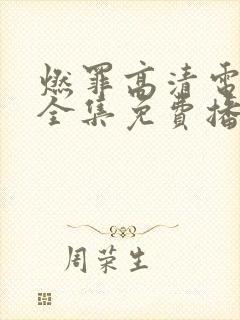 燃罪高清電
全集免費播
周荣生